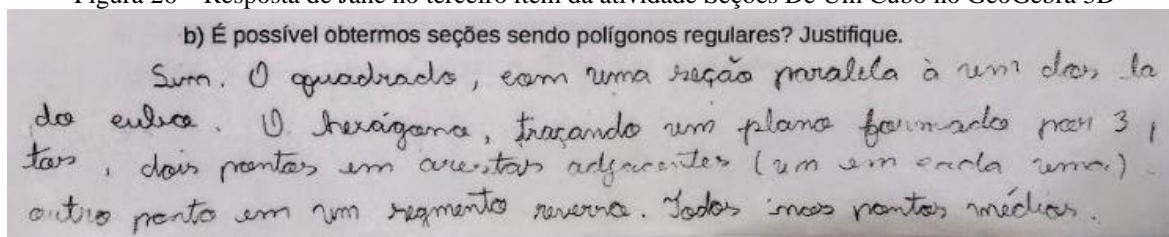 Figura 26 – Resposta de Jane no terceiro item da atividade Seções De Um Cubo no GeoGebra 3D
b) É possível obtermos seções sendo polígonos regulares? Justifique.
Sim. O quadrado, com uma seção paralela à um dos la
do cubo. O hexágono, traçando um plano formado por 3 p
tos, dois pontos em arestas adjacentes (um em cada uma).
outro ponto em um segmento reverso. Todos nos pontos médios.